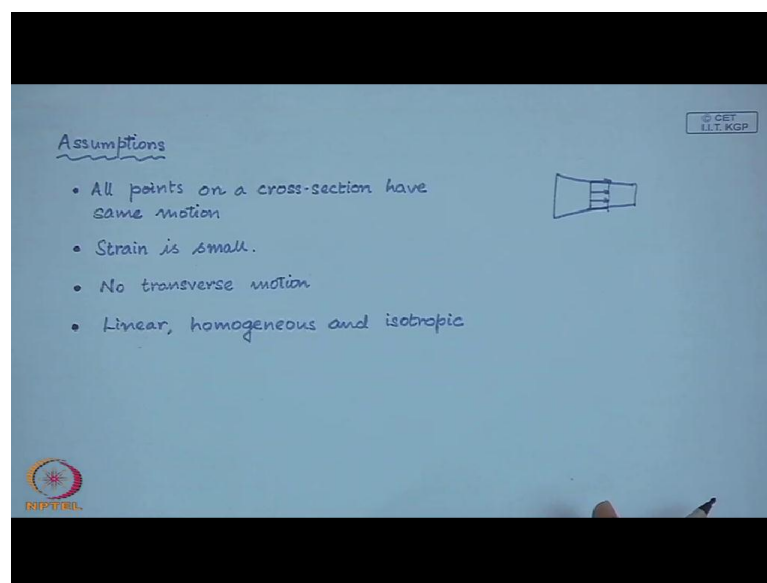 © CET
I.I.T. KGP
Assumptions
• All points on a cross-section have
same motion
• Strain is small.
• No transverse motion
• Linear, homogeneous and isotropic
NPTEL